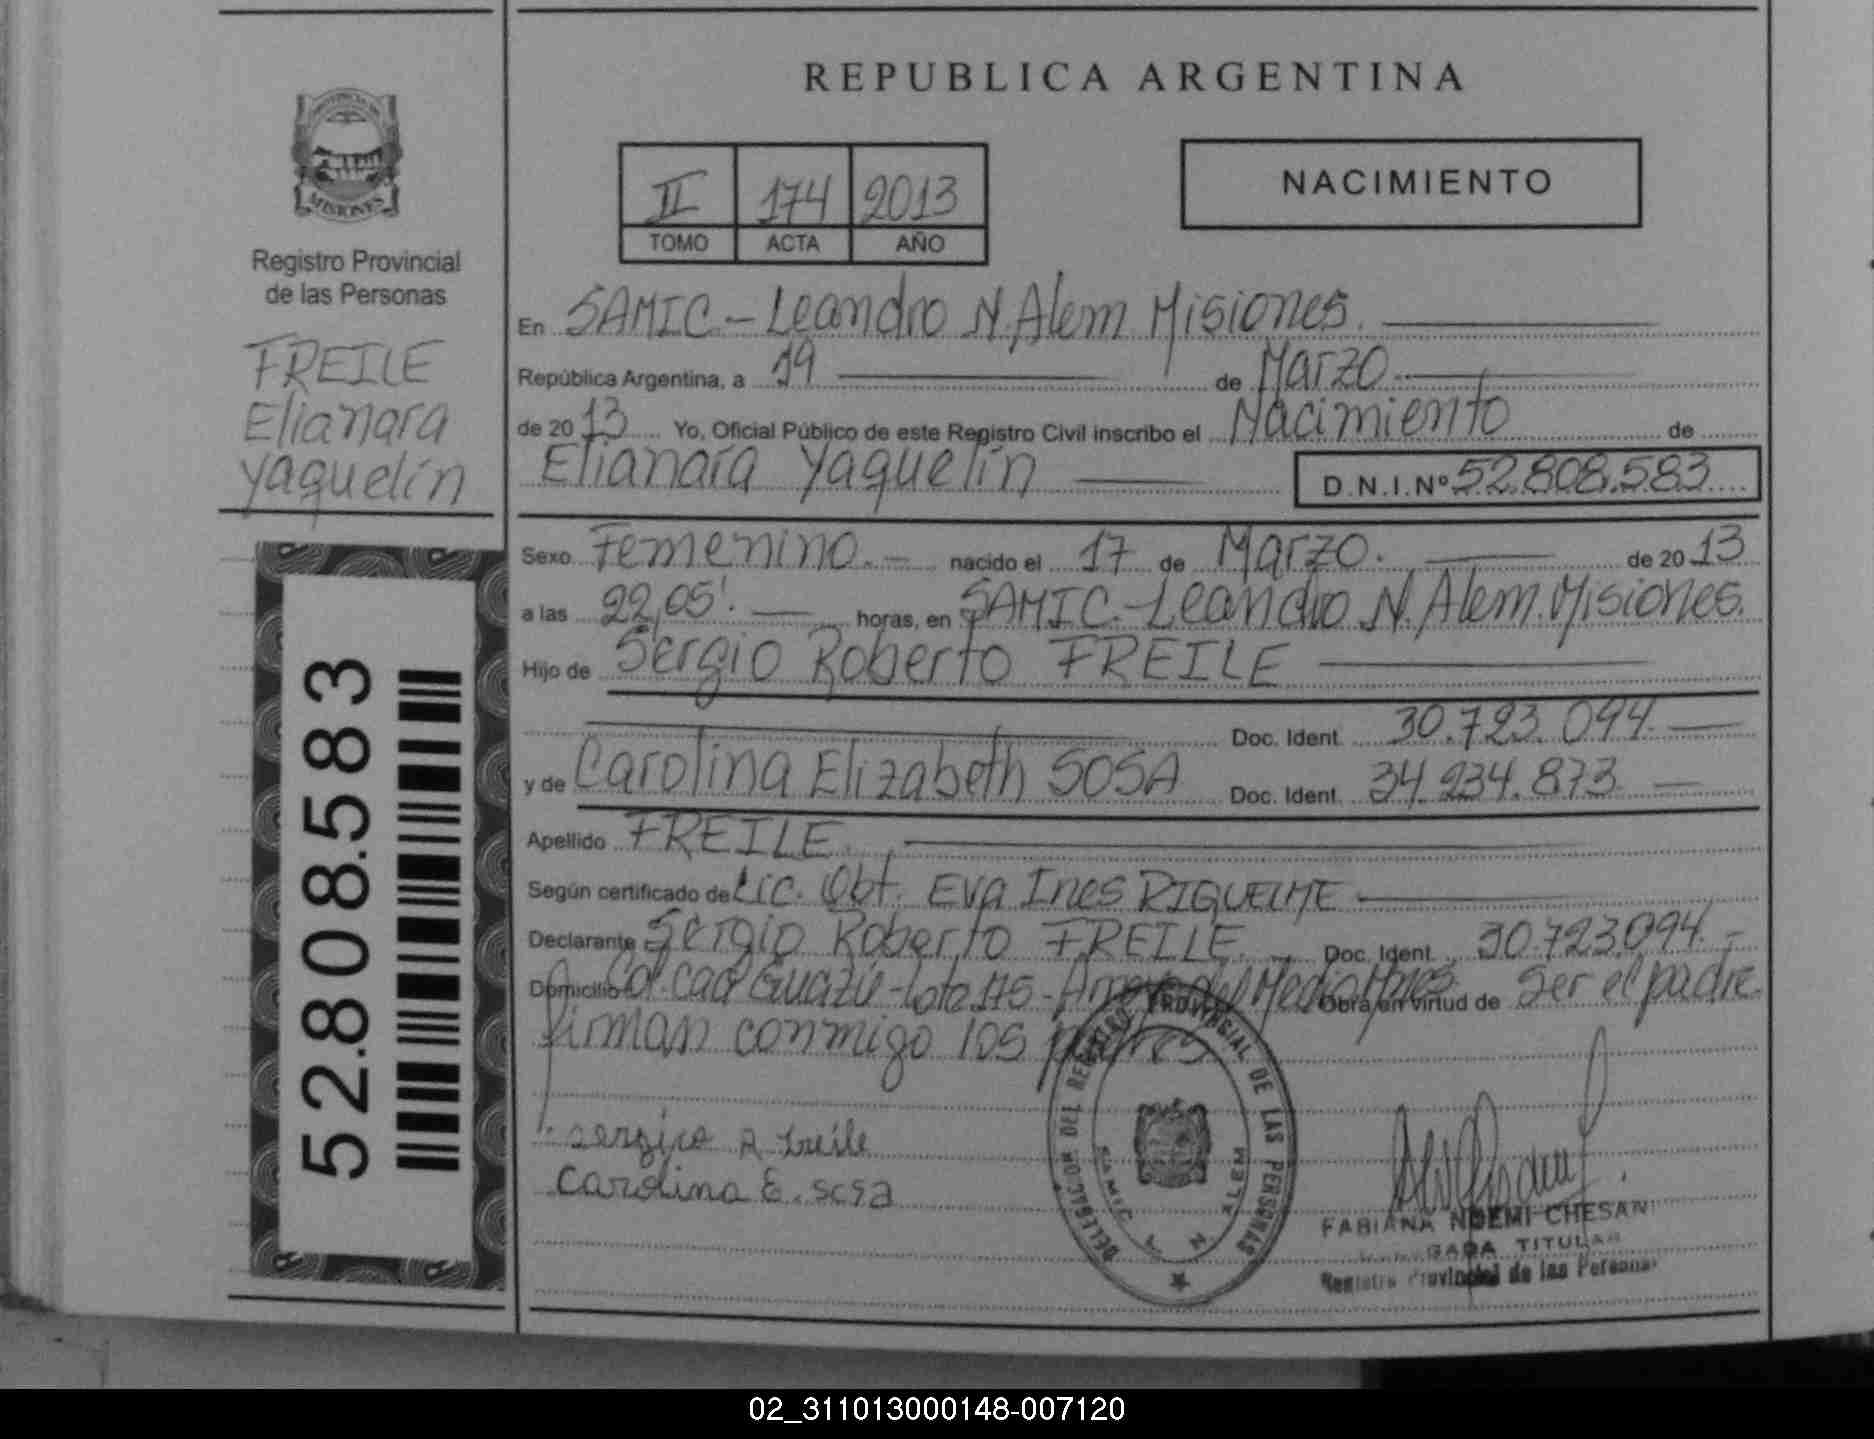 REPUBLICA ARGENTINA
PROVINCIA DE
MISIONES
Registro Provincial
de las Personas
FREILE
Elianara
Yaquelín
II 174 2013
TOMO ACTA AÑO
NACIMIENTO
En SAMIC - Leandro N. Alem Misiones.
República Argentina, a 19 de Marzo
de 2013 Yo, Oficial Público de este Registro Civil inscribo el Nacimiento de
Elianara Yaquelín D.N.I.Nº 52.808.583
Sexo Femenino.- nacido el 17 de Marzo. de 2013
a las 22,05'. horas, en SAMIC - Leandro N. Alem. Misiones.
Hijo de Sergio Roberto FREILE
Doc. Ident. 30.723.094.
y de Carolina Elizabeth SOSA Doc. Ident. 34.234.873
Apellido FREILE.
Según certificado de Lic. Obt. Eva Ines RIQUELME
Declarante Sergio Roberto FREILE. Doc. Ident. 30.723.094.-
Domicilio Col. Caa Guazú - Lote 115 - Arroyo del Medio Mnes. Obra en virtud de ser el padre
firman conmigo los padres
A Freile
Carolina E. sosa
DELEGACION DEL REGISTRO PROVINCIAL DE LAS PERSONAS
SAMIC L. N. ALEM
FABIANA NOEMI CHESANI
TITULAR
Registro Provincial de las Personas
52.808.583
02_311013000148-007120